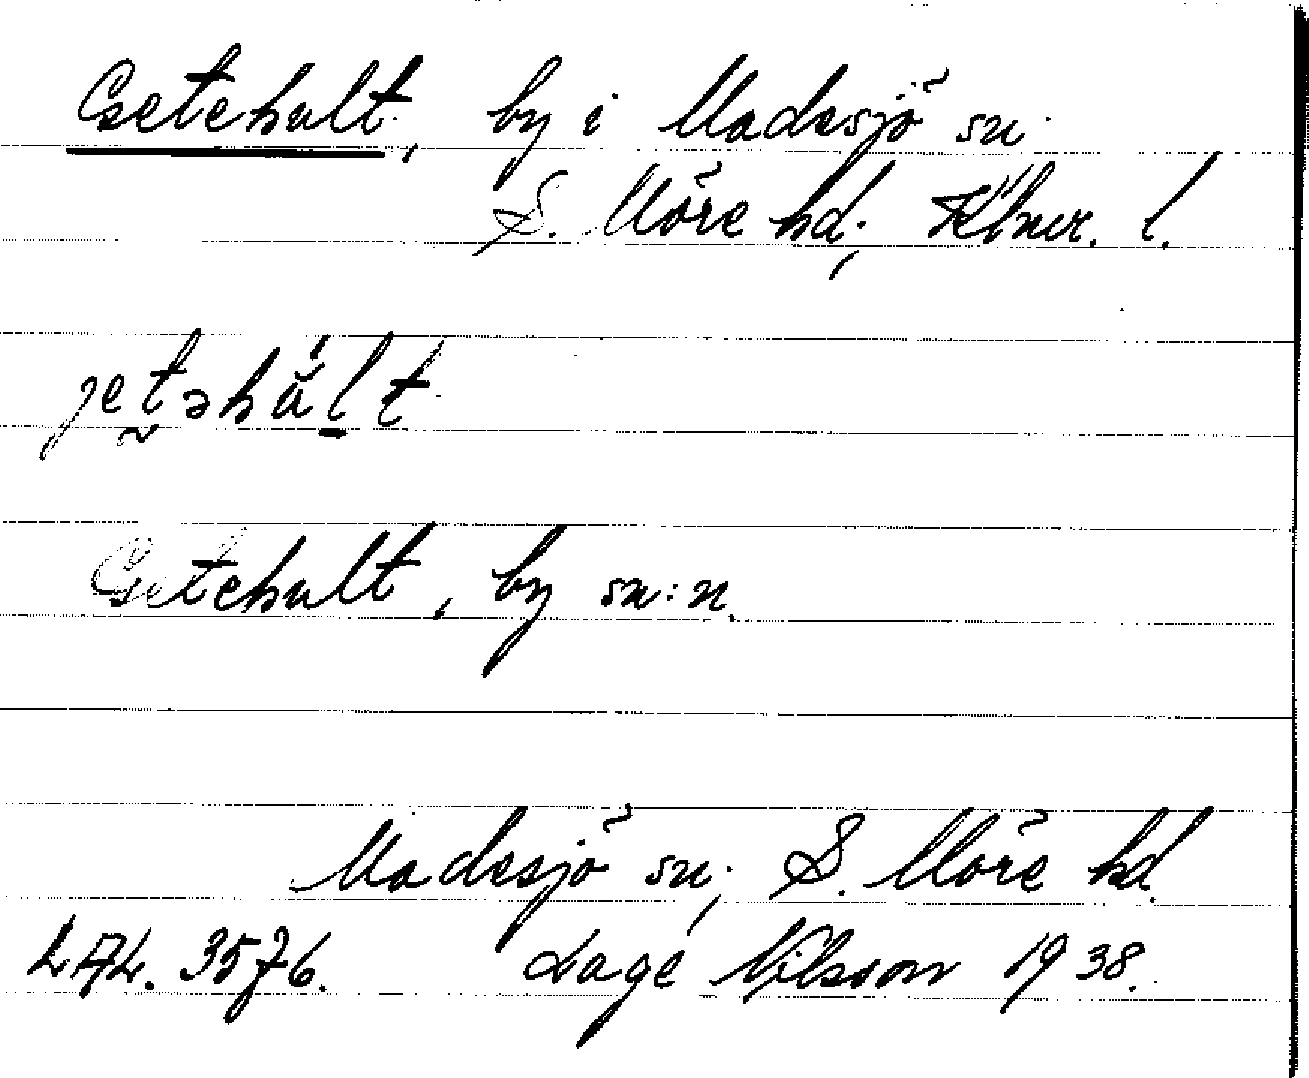 Getehult, by i Madesjö sn.
S. Möre hd, Klmr. l.
jetəhált
Getehult, by sn:n.
Madesjö sn, S. Möre hd.
3576. Lage Nilsson 1938.